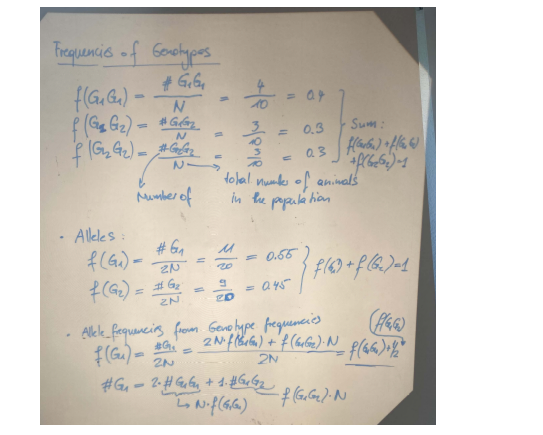 Frequencies of Genotypes
f(G1G1) = # G1G1 / N = 4/10 = 0.4
f(G1G2) = # G1G2 / N = 3/10 = 0.3
f(G2G2) = # G2G2 / N = 3/10 = 0.3
Sum:
f(G1G1) + f(G1G2)
+ f(G2G2) = 1
Number of
total number of animals
in the population
• Alleles:
f(G1) = # G1 / 2N = 11/20 = 0.55
f(G2) = # G2 / 2N = 9/20 = 0.45
f(G1) + f(G2) = 1
• Allele frequencies from Genotype frequencies
f(G1) = #G1 / 2N = 2N·f(G1G1) + f(G1G2)·N / 2N = f(G1G1) + 1/2
(f(G1G2)
#G1 = 2·#G1G1 + 1·#G1G2
→ N·f(G1G1)
f(G1G2)·N